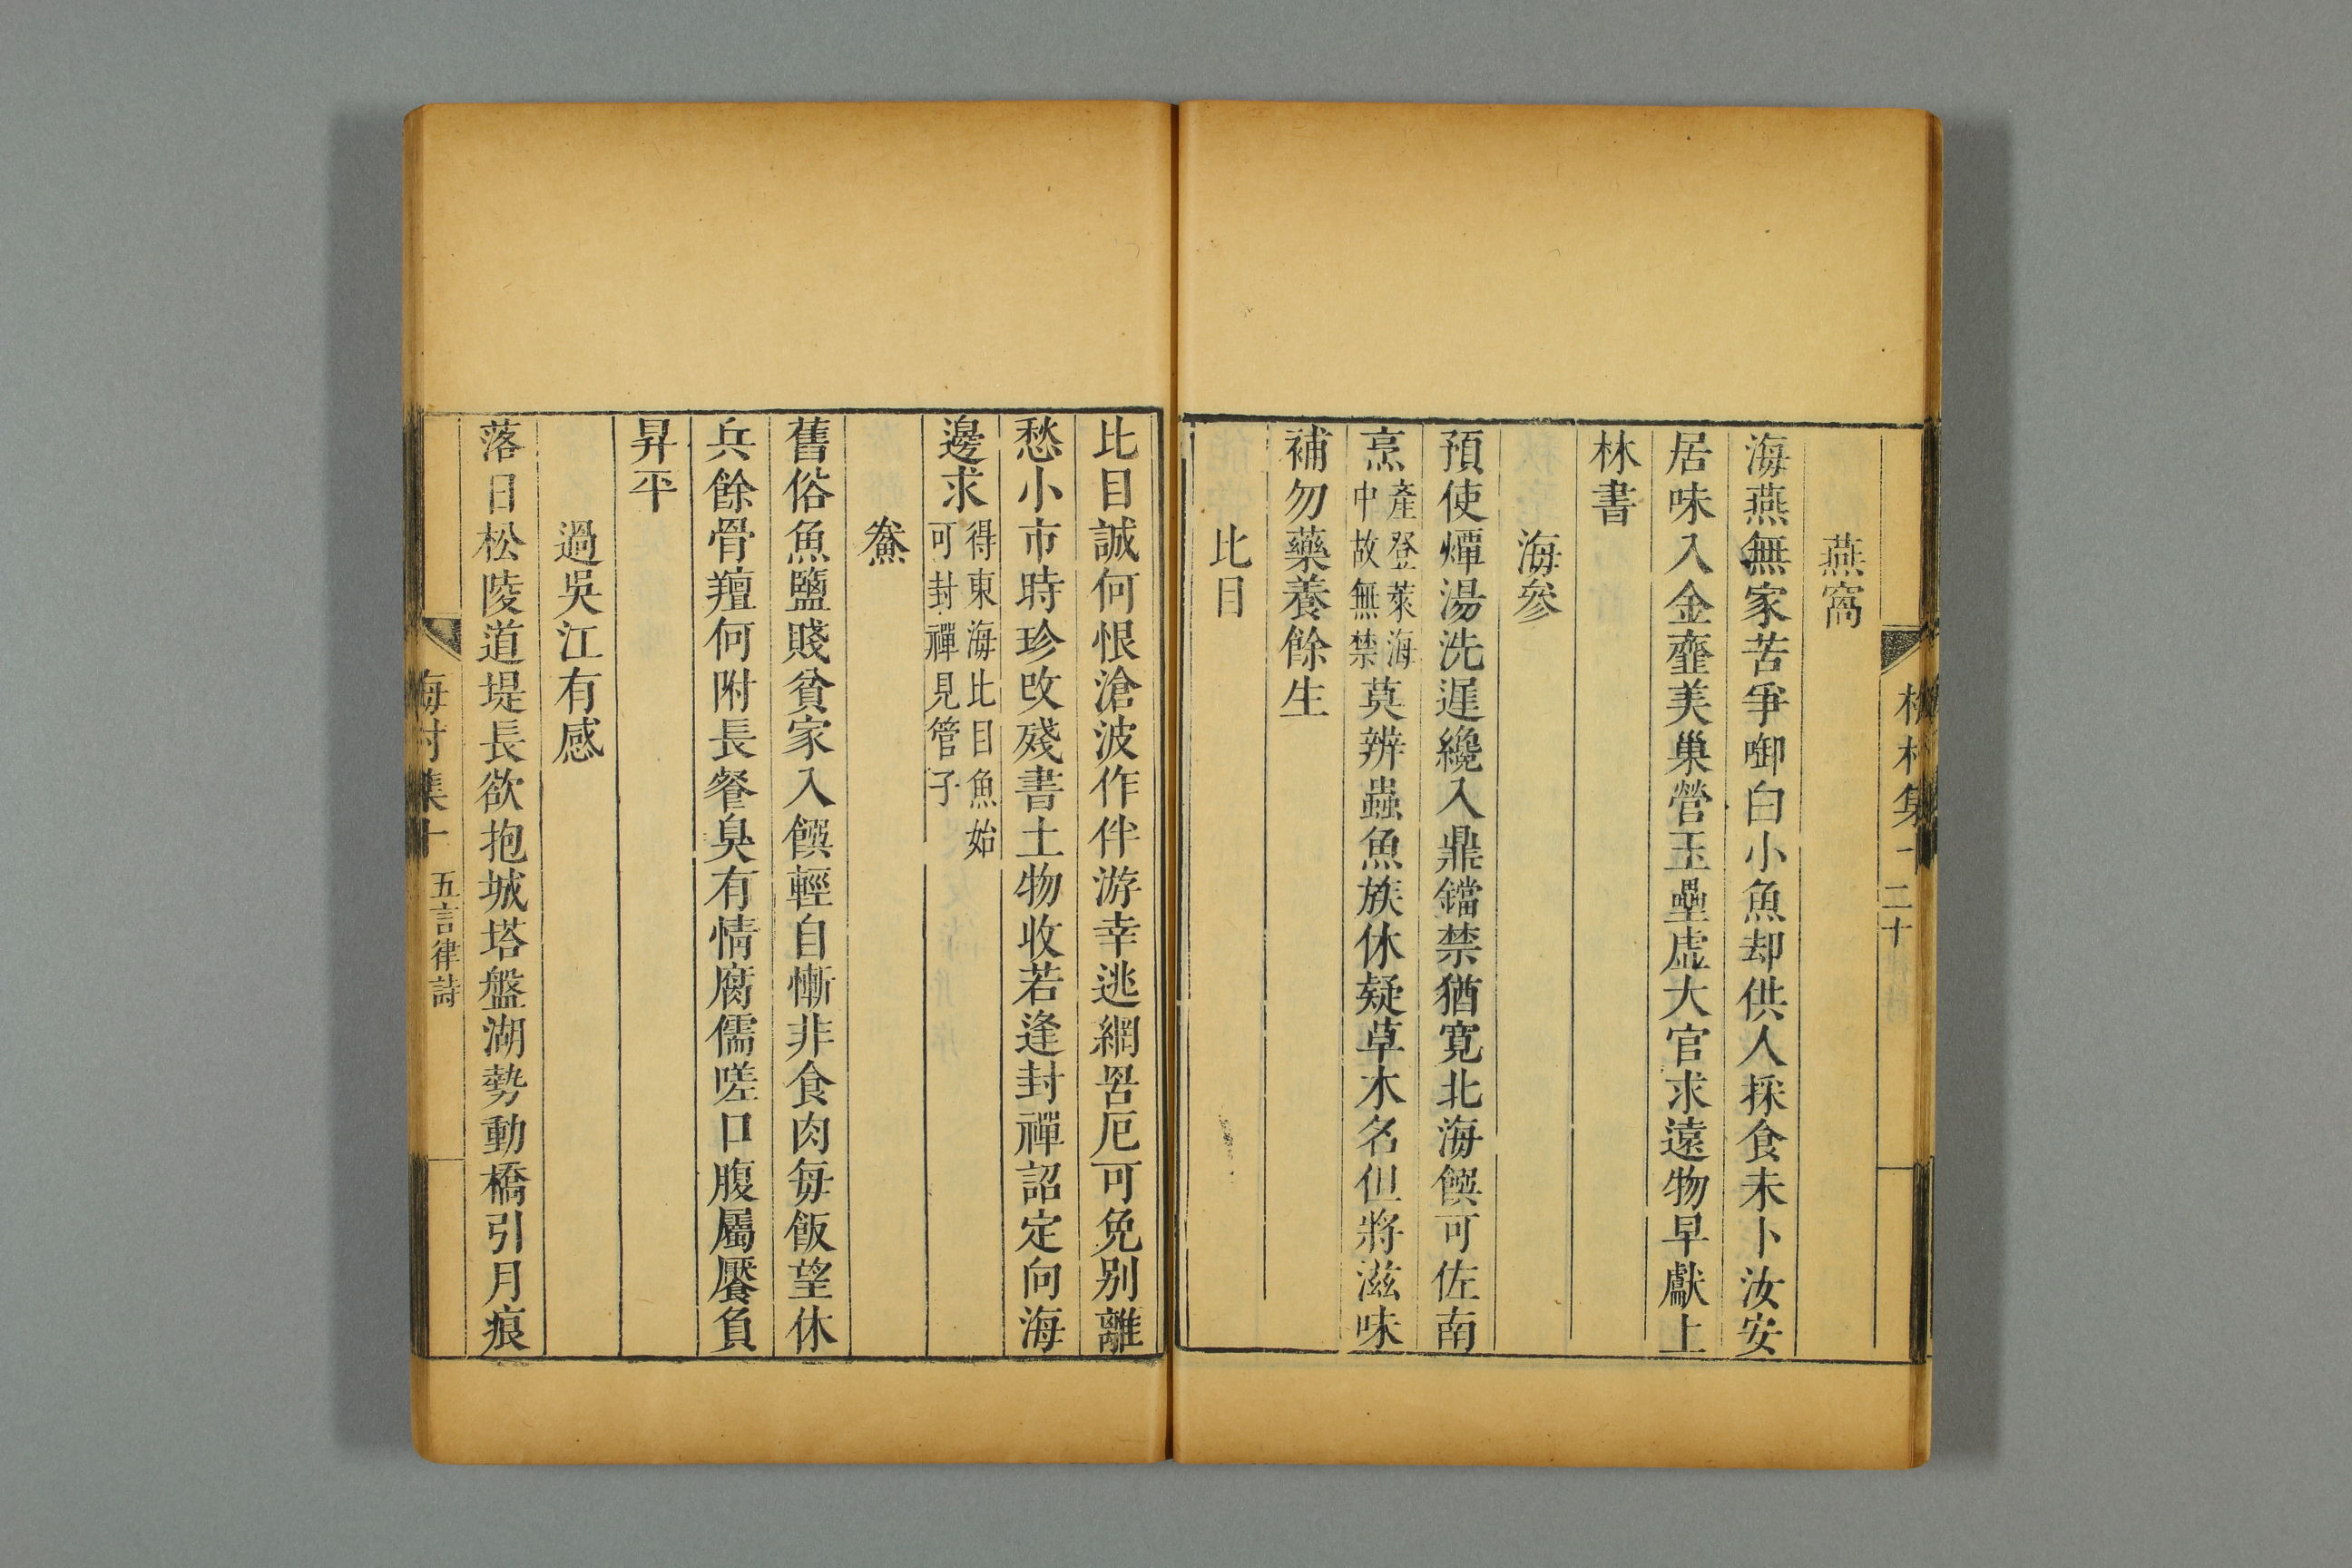 燕窩
海燕無家苦爭啣白小魚却供人採食未卜汝安
居味入金虀美巢營玉壘虛大官求遠物早獻上
林書
海參
預使燂湯洗遲纔入鼎鐺禁猶寛北海饌可佐南
烹產登萊海中故無禁莫辨蟲魚族休疑草木名但將滋味
補勿藥養餘生
比目
二十
比目誠何恨滄波作伴游幸逃網罟厄可免别離
愁小市時珍改殘書土物收若逢封禪詔定向海
邊求得東海比目魚始可封禪見管子
鮝
舊俗魚鹽賤貧家入饌輕自慚非食肉每飯望休
兵餘骨羶何附長餐臭有情腐儒嗟口腹屬饜負
昇平
過吳江有感
落日松陵道堤長欲抱城塔盤湖勢動橋引月痕
海村集十 五言律詩